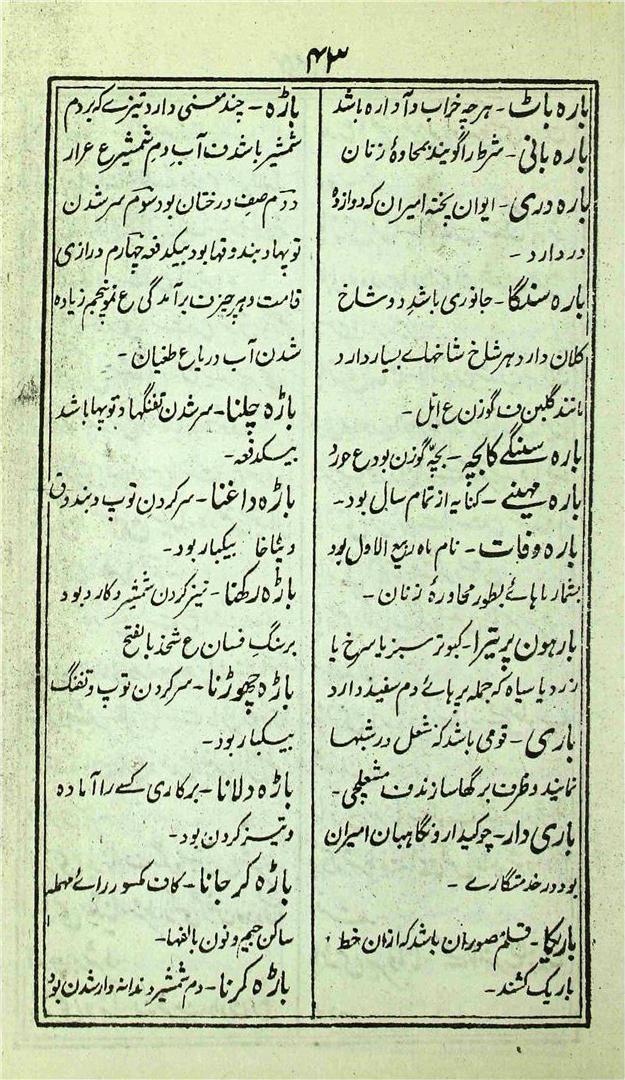 ۴۳
بارہ باٹ - ہرچہ خراب و آوارہ باشد
بارہ بانی - شرط را گویند بمحاورۂ زنان
بارہ دری - ایوان پختہ امیران کہ دوازدہ
در دارد -
بارہ سنگا - جانوری باشد دو شاخ
کلان دارد ہر شاخ شاخہاے بسیار دارد
مانند گلبن ف گوزن ع ایّل -
بارہ سنگے کا بچہ - بچۂ گوزن بود ع
بارہ مہینے - کنایہ از تمام سال بود -
بارہ وفات - نام ماہ ربیع الاول بود
بشمار ماہاے بطور محاورۂ زنان -
بارہون پر تیرا - کبوتر سبز یا سرخ یا
زرد یا سیاہ کہ جملہ پرہاے دم سفید دارد
باری - قومی باشد کہ شغل در شبہا
نمایند و ظرف برگہا سازند ف مشعلچی -
باری دار - چوکیدار و نگاہبان امیران
بود در خدمتگارے -
باریکا - قلم مصوران باشد کہ ازان خط
باریک کشند -
باڑہ - چند معنی دارد تیزے کہ بر دم
شمشیر باشد ف آب دم شمشیر ع غرار
دوّم صف درختان بود سوّم سر شدن
توپہا و بندوقہا بود بیکدفعہ چہارم درازی
قامت و ہر چیز ف برآمدگی ع نمو پنجم زیادہ
شدن آب دریا ع طغیان -
باڑہ چلنا - سر شدن تفنگہا و توپہا باشد
بیکدفعہ -
باڑہ داغنا - سر کردن توپ و بندوق
بیکبار بود -
باڑہ رکھنا - تیز کردن شمشیر و کارد بود
بر سنگ فسان ع شحذ بالفتح
باڑہ چھوڑنا - سر کردن توپ و تفنگ
بیکبار بود -
باڑہ دلانا - بر کاری کسے را آمادہ
و تیز کردن بود -
باڑہ کر جانا - کاف مکسور راے مہملہ
ساکن جیم و نون بالفہا -
باڑہ کرنا - دم شمشیر دندانہ وار شدن بود